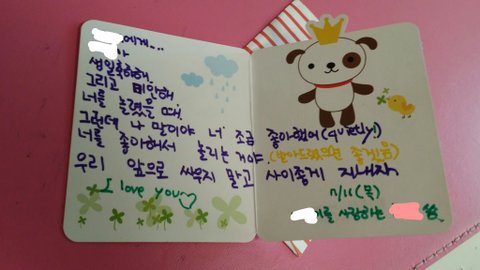 에게...
아
생일축하해.
그리고 미안해
너를 놀렸을 때.
그런데 나 말이야 너 조금 좋아했어(quietly!)
너를 좋아해서 놀리는거야 (받아드렸으면 좋겠음)
우리 앞으로 싸우지 말고 사이좋게 지내자
I love you♡
7/11(목)
를 사랑하는 씀.